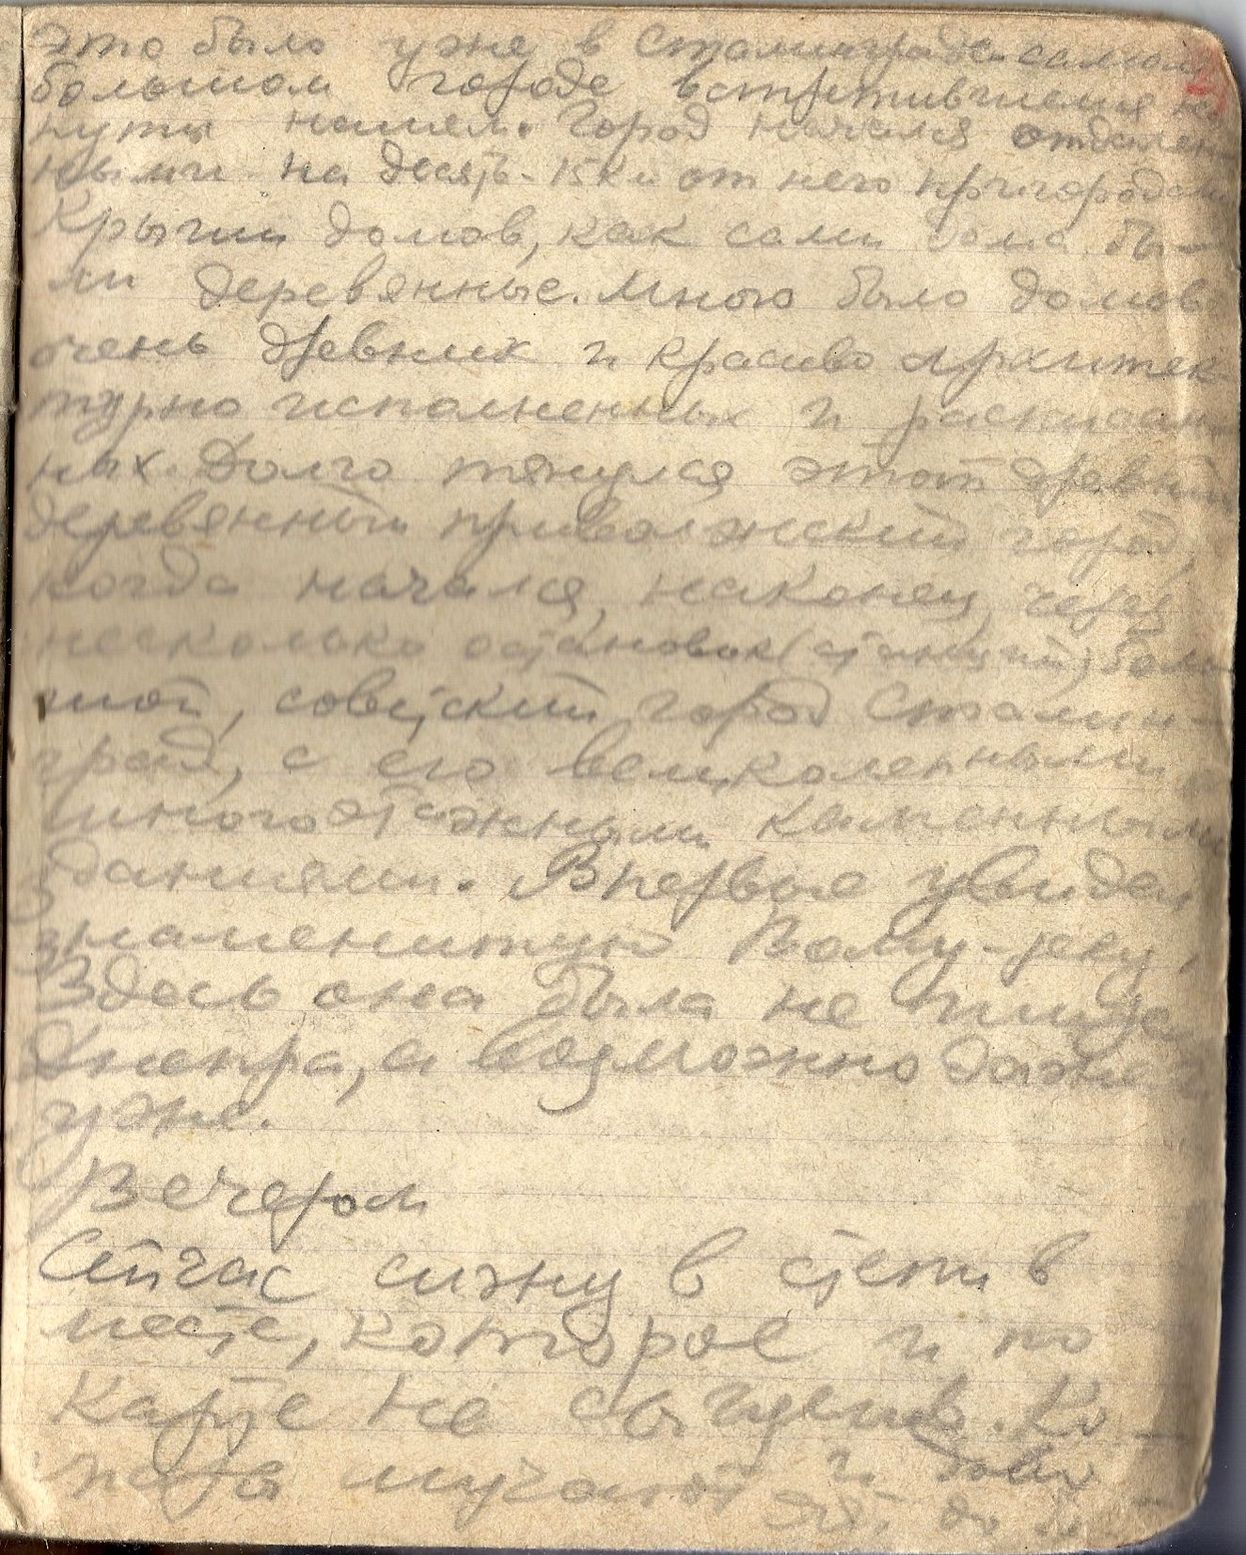 Это было уже в Сталинграде - самом
большом городе встретившемся на
пути нашем. Город начался отдален-
ными на десять - 15 км от него пригородами
Крыши домов, как сами дома бы-
ли деревянные. Много было домов
очень древних и красиво архитек
турно исполненных и расписан-
ных. Долго тянулся этот древний
деревянный приволжский город,
когда начался, наконец, через
несколько остановок (станций) боль
шой, советский город Сталин-
град, с его великолепными
многоэтажными каменными
зданиями. Впервые увидел
знаменитую Волгу-реку,
Здесь она была не шире
Днепра, а возможно даже и
уже.
Вечером
Сейчас сижу в степи в
месте, которое и по
карте не сыщешь. Ко-
мары мучают и
до